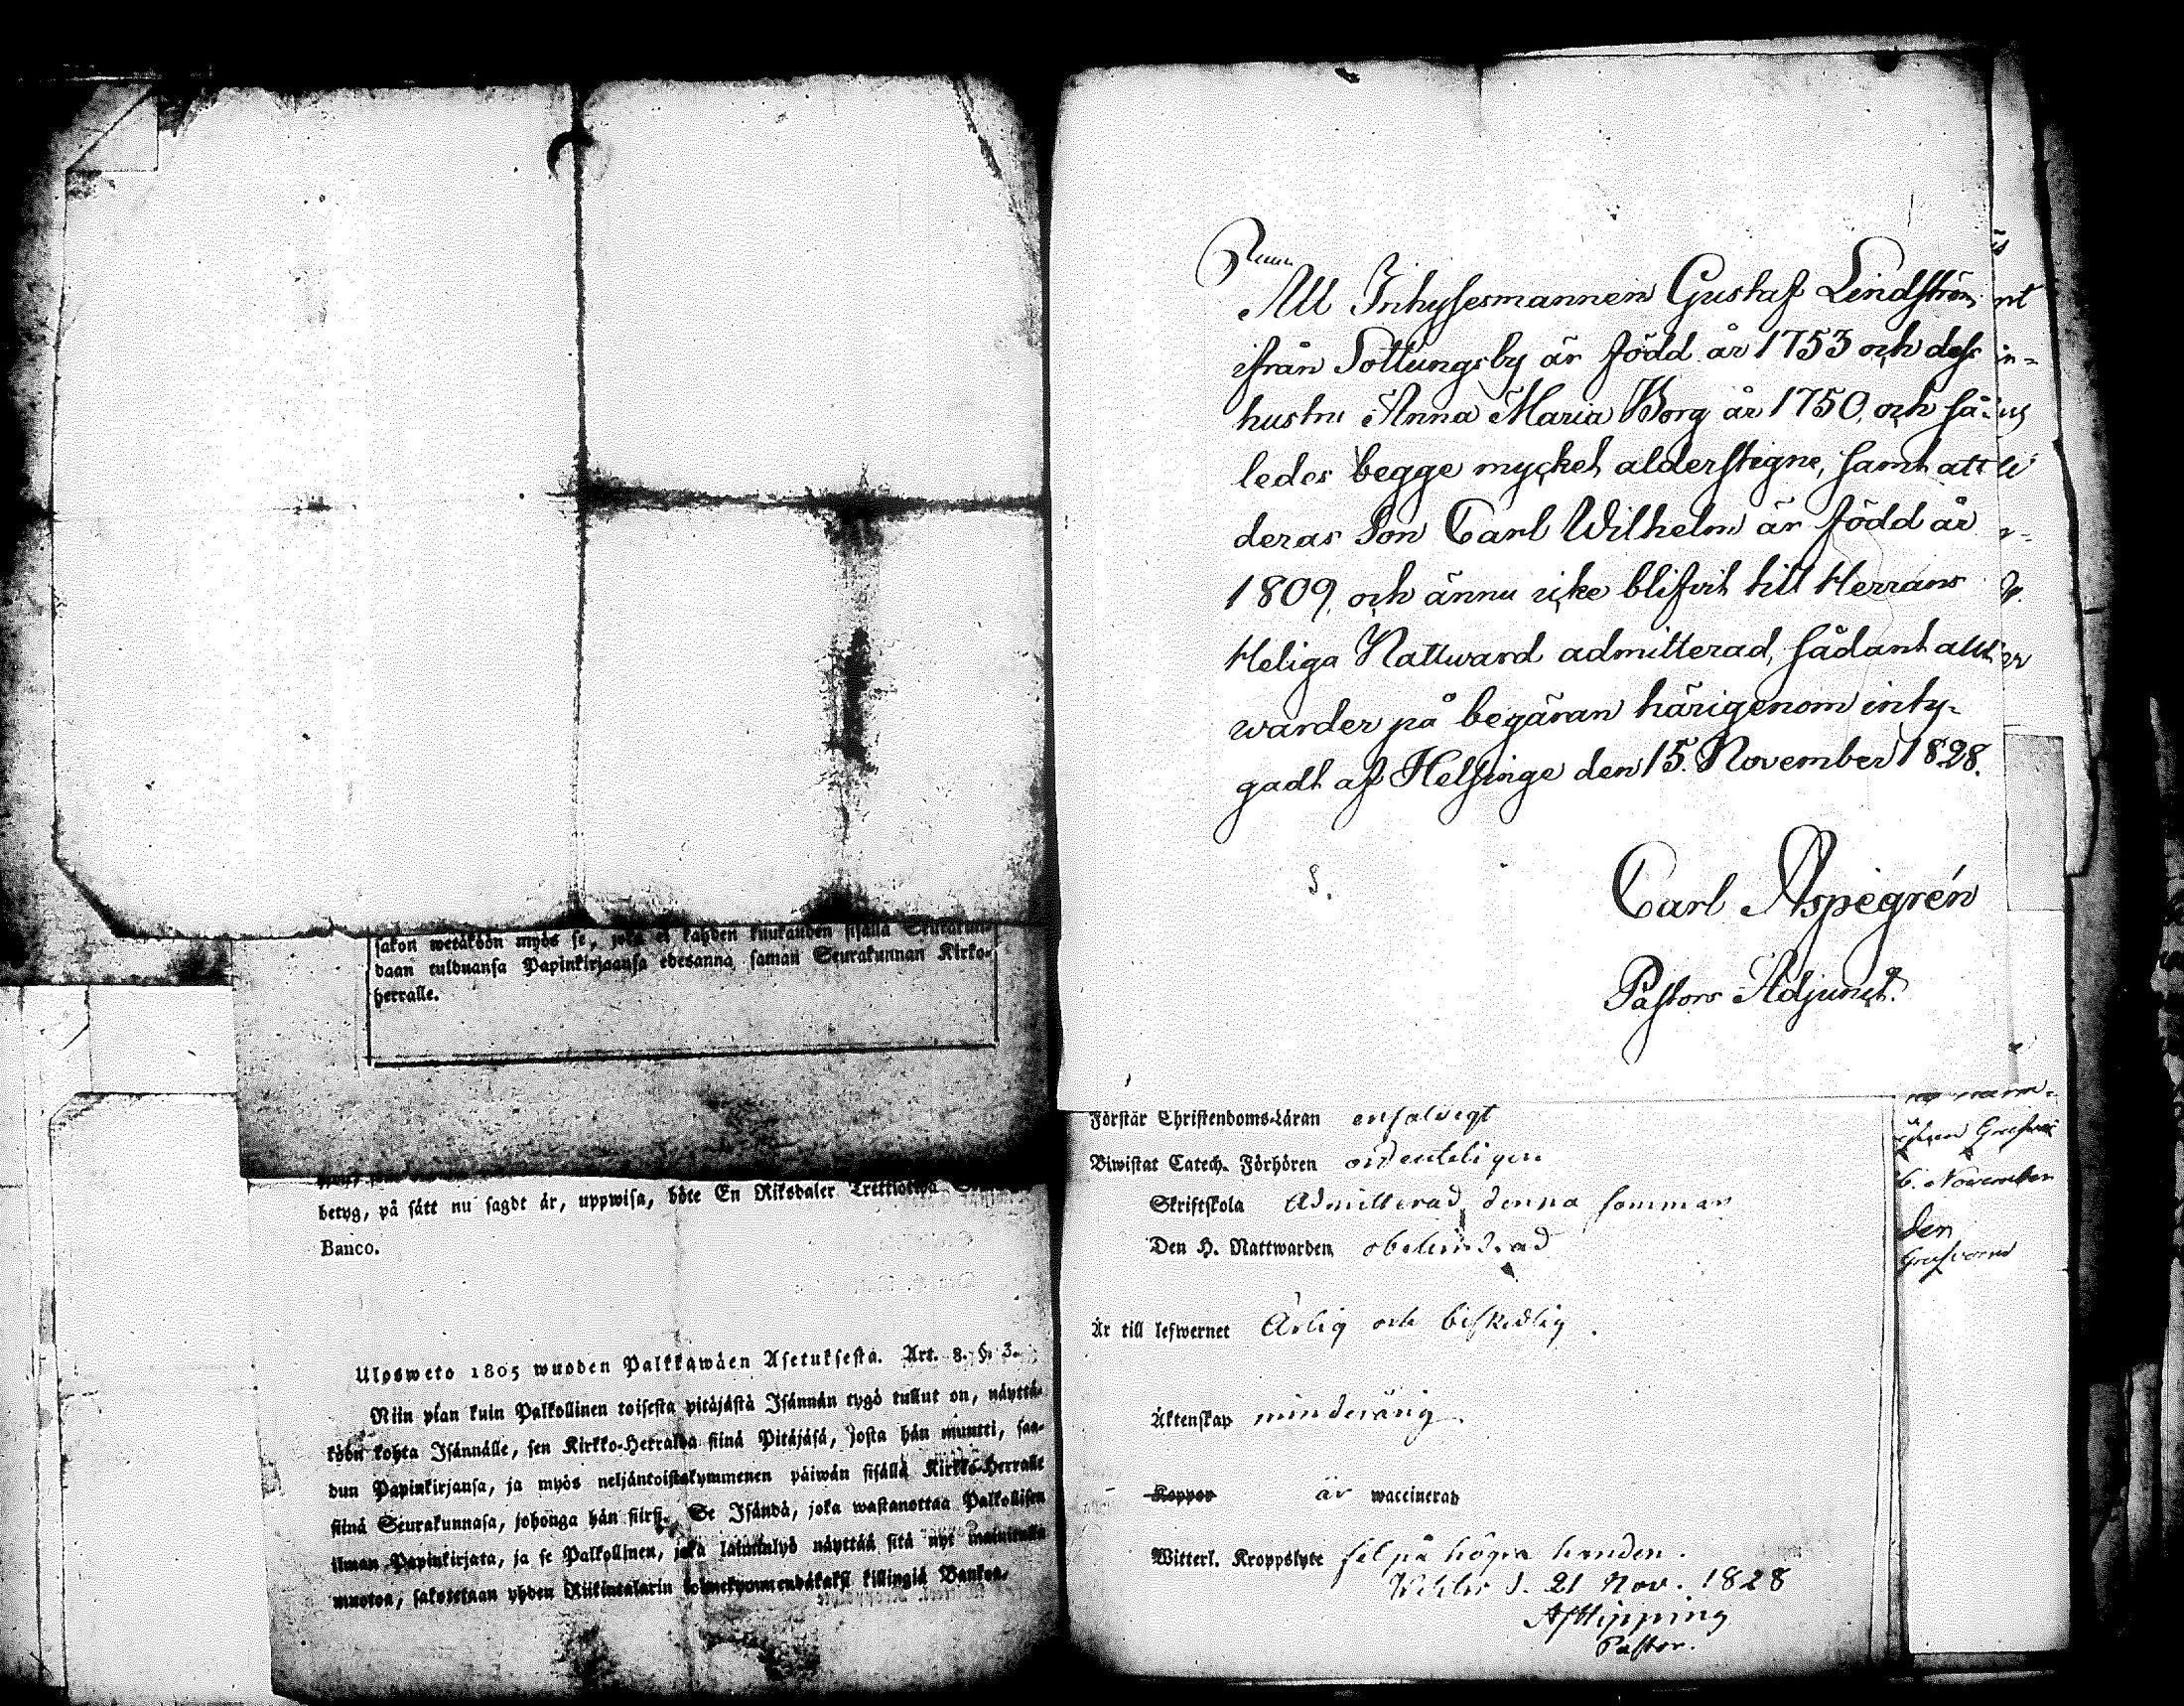 sakon wetäköön myös se, joka ei kahden kuukauden sisällä Seurakun-
daan tulduansa Papinkirjaansa edesanna saman Seurakunnan Kirko-
herralle.
betyg, på sätt nu sagdt är, uppwisa, böte En Riksdaler Trettiotwå
Banco.
Ulosweto 1805 wuoden Palkkawäen Asetuksesta. Art. 8. §. 3.
Niin pian kuin Palkollinen toisesta pitäjästä Isännän tygö tullut on, näyttä-
köön kohta Isännälle, sen Kirkko-Herralda siinä Pitäjäsä, josta hän muutti, saa-
dun Papinkirjansa, ja myös neljäntoistakymmenen päiwän sisällä Kirkko-Herralle
siinä Seurakunnasa, johonga hän siirsi. Se Isändä, joka wastanottaa Palkollisen
ilman Papinkirjata, ja se Palkollinen, joka laiminlyö näyttää sitä nyt mainitulla
muotoa, sakotetaan yhden Riikintalarin kolmekymmendäkaksi killingiä Bankoa.
Att Inhysesmannen Gustaf Lindström
ifrån Sottungsby är född år 1753 och dess
hustru Anna Maria Borg år 1750, och så-
ledes begge mycket alderstegne, samt att
deras Son Carl Wilhelm är född år
1809, och ännu icke blifvit till Herrans
Heliga Nattward admitterad, sådant allt
warder på begäran härigenom inty-
gadt af Helsinge den 15. November 1828.
Carl Aspegrén
Pastors Adjunct.
Förstår Christendoms-Läran enfaldigt
Biwistat Catech. Förhören ordenteligen
Skriftskola Admitterad denna sommar
Den H. Nattwarden obehindrad
Är till lefwernet Ärlig och beskedlig.
Äktenskap minderårig.
Koppor är waccinerad
Witterl. Kroppslyte fel på högra handen.
d. 21 Nov. 1828
Hipping
Pastor.
6. November
den